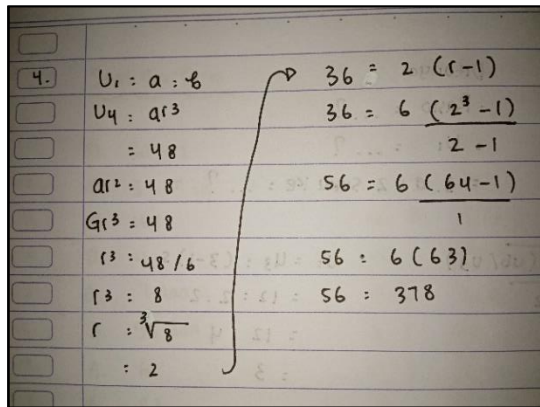 4.
U₁ : a : 6
U4 : ar³
= 48
ar² = 48
Gr³ = 48
r³ : 48/6
r³ : 8
r : ³√8
: 2
36 = 2 (r-1)
36 = 6 (2³-1)
2-1
56 = 6 (64-1)
1
56 : 6(63)
56 = 378